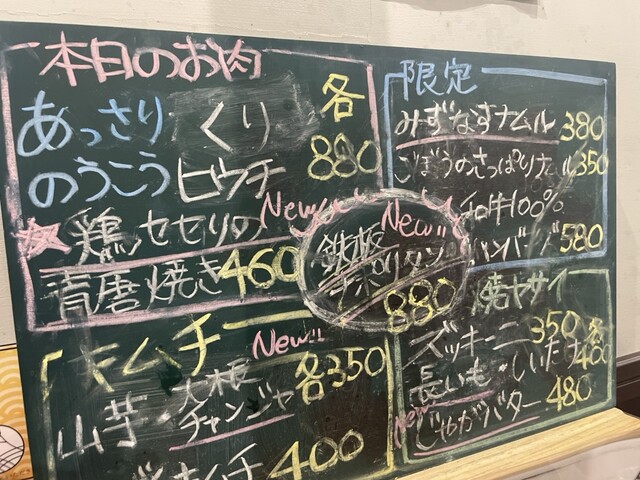 本日のお肉
各
あっさり くり
880
のうこう ビウチ
New!!
鶏セセリの
青唐焼き 460
キムチ
New!!
各350
山芋・大根
チャンジャ
キムチ 400
New!!
鉄板
ナポリタン
880
限定
みずなすナムル 380
ごぼうのさっぱりナムル 350
和牛100%
ハンバーグ 580
焼ヤサイ
ズッキーニ 350 各
長いも・しいたけ 400
New
じゃがバター 480